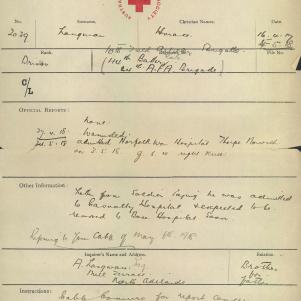 No.
Surname.
Christian Names.
Date
2029
Langman
Horace
16.4.17
File No.
Rank.
Driver
10th Field Artillery Brigade
(114th Battery
24th A.F.A. Brigade)
C/L
OFFICIAL REPORTS:
None.
Wounded.
24.5.18 admitted Norfolk War Hospital Thorpe Norwich
on 3.5.18 G.S.W right knee
Other Information:
Letter from Soldier saying he was admitted
to Casualty Hospital & expected to be
removed to Base Hospital soon
Referring to your Cable of May 8th 1918
Inquirer's Name and Address.
Relation
A. Langman
Terrace
North Adelaide
Brother
father
Instructions:
Cable for report